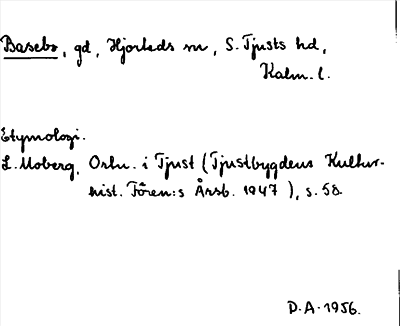 Basebo, gd, Hjorteds sn, S. Tjusts hd,
Kalm. l.
Etymologi.
L. Moberg, Ortn. i Tjust (Tjustbygdens Kultur-
hist. Fören:s Årsb. 1947), s. 58.
D.A. 1956.